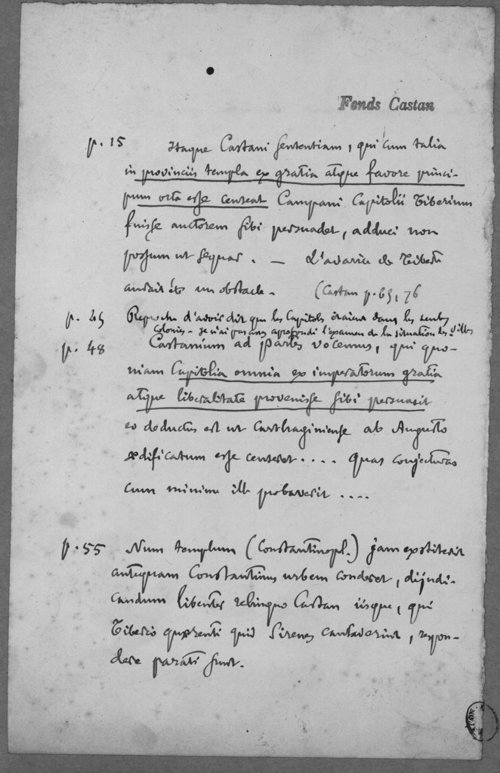 Fonds Castan
p. 15 Itaque Castani sententiam, qui cum talia
in provinciis templa ex gratia atque favore princi-
pum orta esse censeat Campani Capitolii Tiberium
fuisse auctorem sibi persuadet, adduci non
possum ut sequar. — L'avarice de Tibère
aurait été un obstacle. (Castan p. 65, 76
p. 45 Reproche d'avoir dit que les Capitoles étaient dans les seules
colonies - je n'ai pas assez approfondi l'examen de la situation des villes
p. 48 Castanium ad partes vocemus, qui quo-
niam Capitolia omnia ex imperatorum gratia
atque liberalitate provenisse sibi persuasit
eo deductus est ut Carthaginiense ab Augusto
ædificatum esse censeret .... quas conjecturas
cum minime ille probaverit ....
p. 55 Num templum (Constantinopl.) jam exstiterit
antequam Constantinus urbem conderet, dijudi-
candum libenter relinquo Castan iisque, qui
Tiberio quærenti quid Sirenes cantaverint, respon-
dere parati sunt.